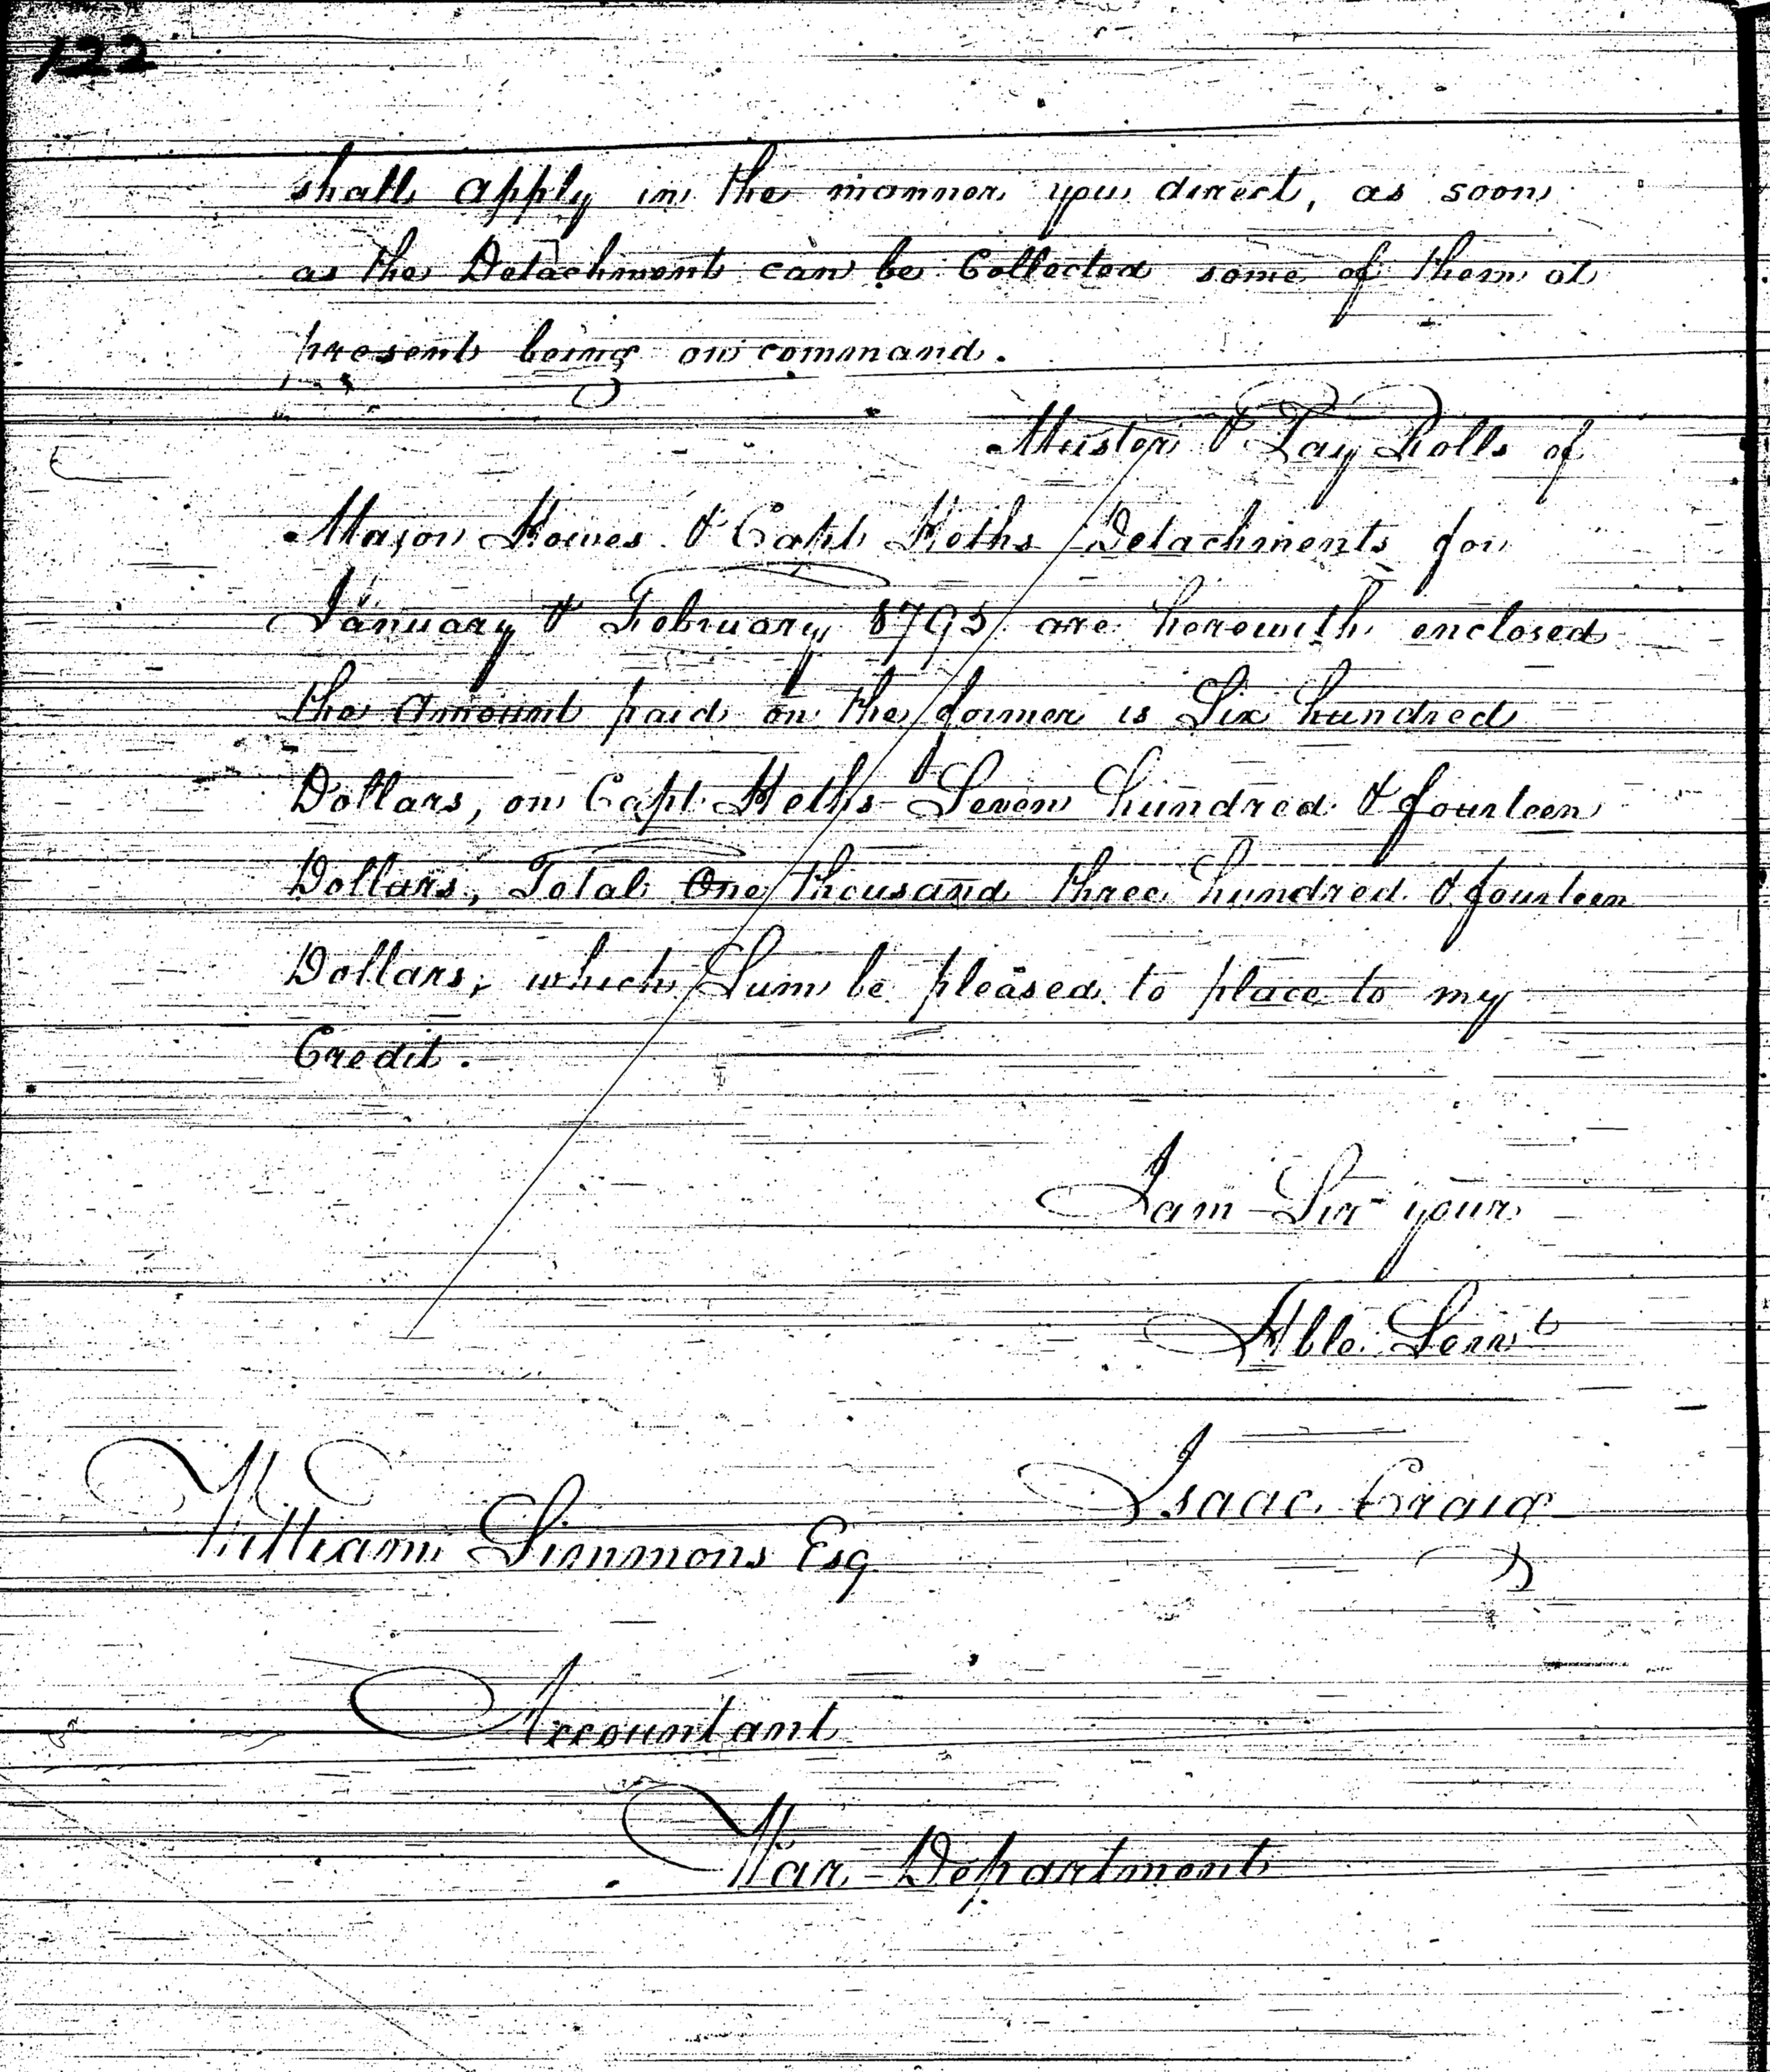 122
shall apply in the manner you direct, as soon
as the Detachment can be Collected some of them at
present being on command.
Muster & Pay Rolls of
Major Howes & Capt Heths Detachments for
January & February 1795 are herewith enclosed
the Amount paid on the former is Six hundred
Dollars, on Capt. Heths Seven hundred & fourteen
Dollars, Total One thousand three hundred & fourteen
Dollars, which Sum be pleased to place to my
Credit.
I am Sir your
Hble Servt
Isaac Craig
William Simmons Esq
Accountant
War Department